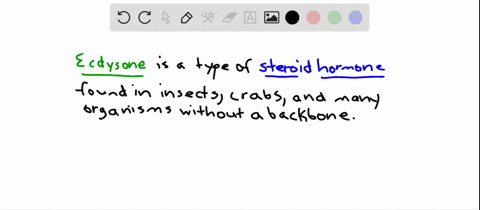 Ecdysone is a type of steroid hormone
found in insects, crabs, and many
organisms without a backbone.